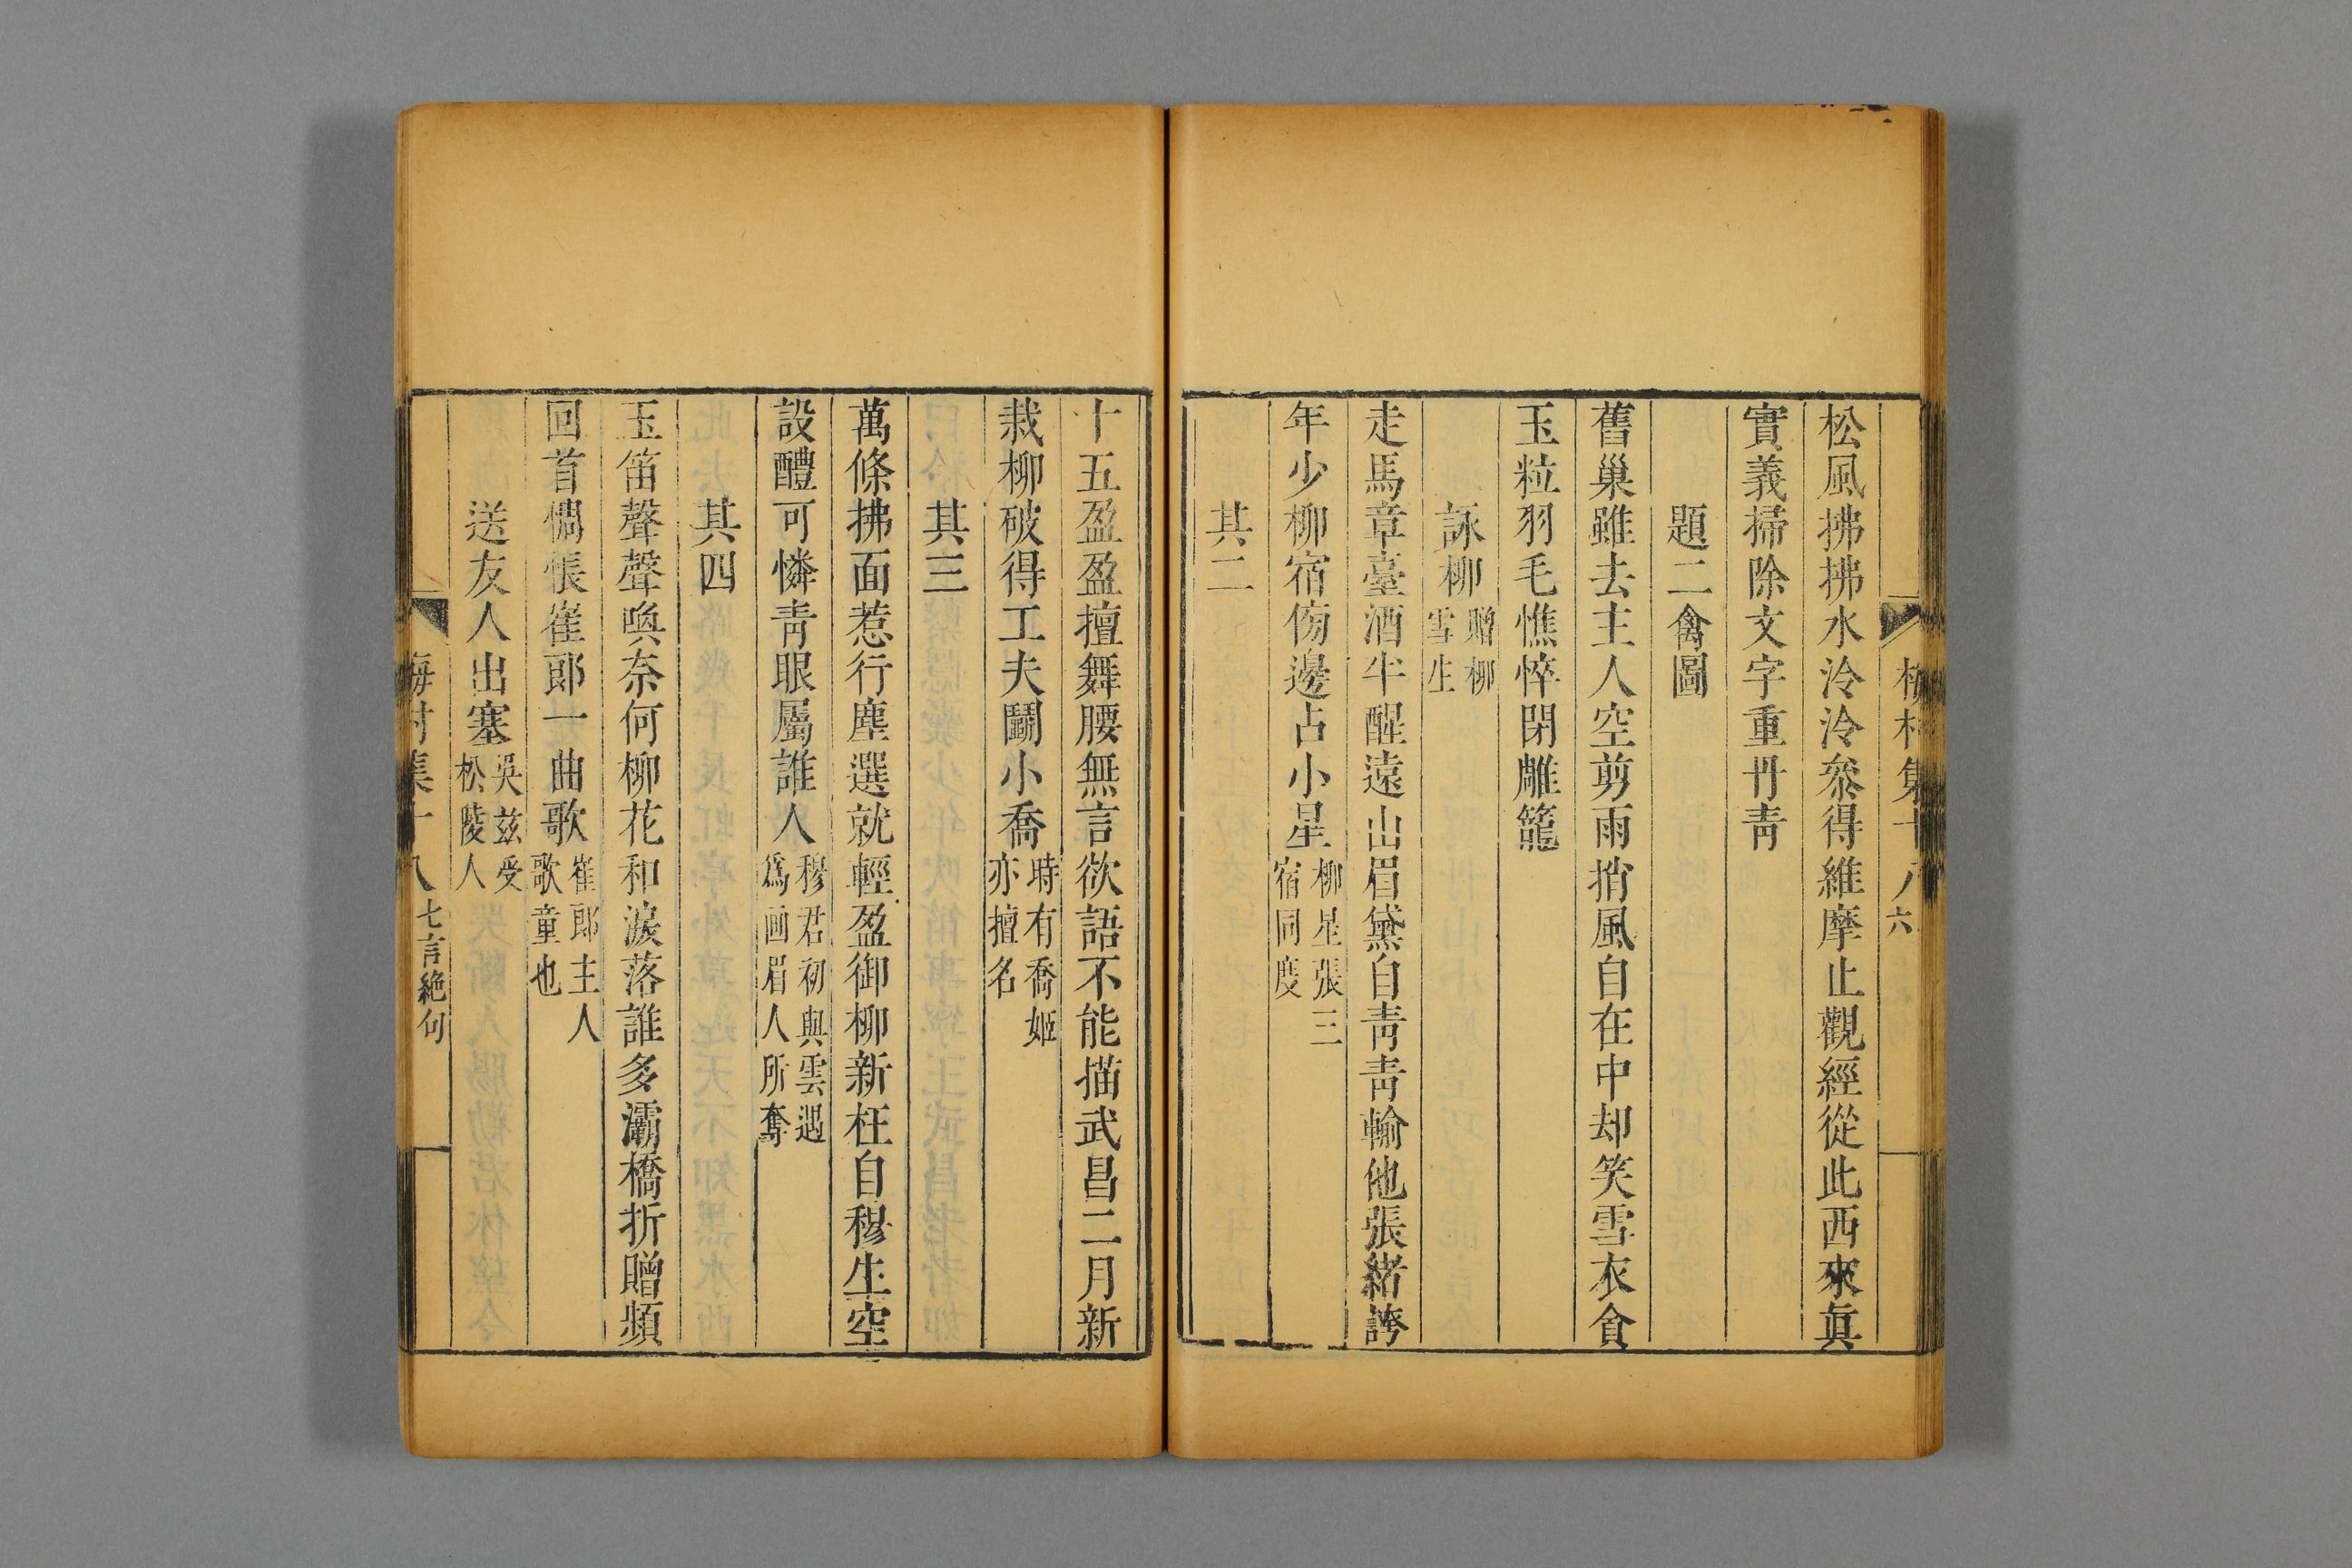 梅村集十八 六
松風拂拂水泠泠叅得維摩止觀經從此西來眞
實義掃除文字重丹靑
題二禽圖
舊巢雖去主人空剪雨捎風自在中却笑雪衣貪
玉粒羽毛憔悴閉雕籠
詠柳 贈柳雪生
走馬章臺酒半醒遠山眉黛自靑靑輸他張緒誇
年少柳宿傍邊占小星 柳星張三宿同度
其二
十五盈盈擅舞腰無言欲語不能描武昌二月新
栽柳破得工夫鬭小喬 時有喬姬亦擅名
其三
萬條拂面惹行塵選就輕盈御柳新枉自穆生空
設醴可憐靑眼屬誰人 穆君初與雲遇爲画眉人所奪
其四
玉笛聲聲喚奈何柳花和淚落誰多灞橋折贈頻
回首惆悵崔郞一曲歌 崔郞主人歌童也
送友人出塞 吳兹受松陵人
梅村集十八 七言絶句